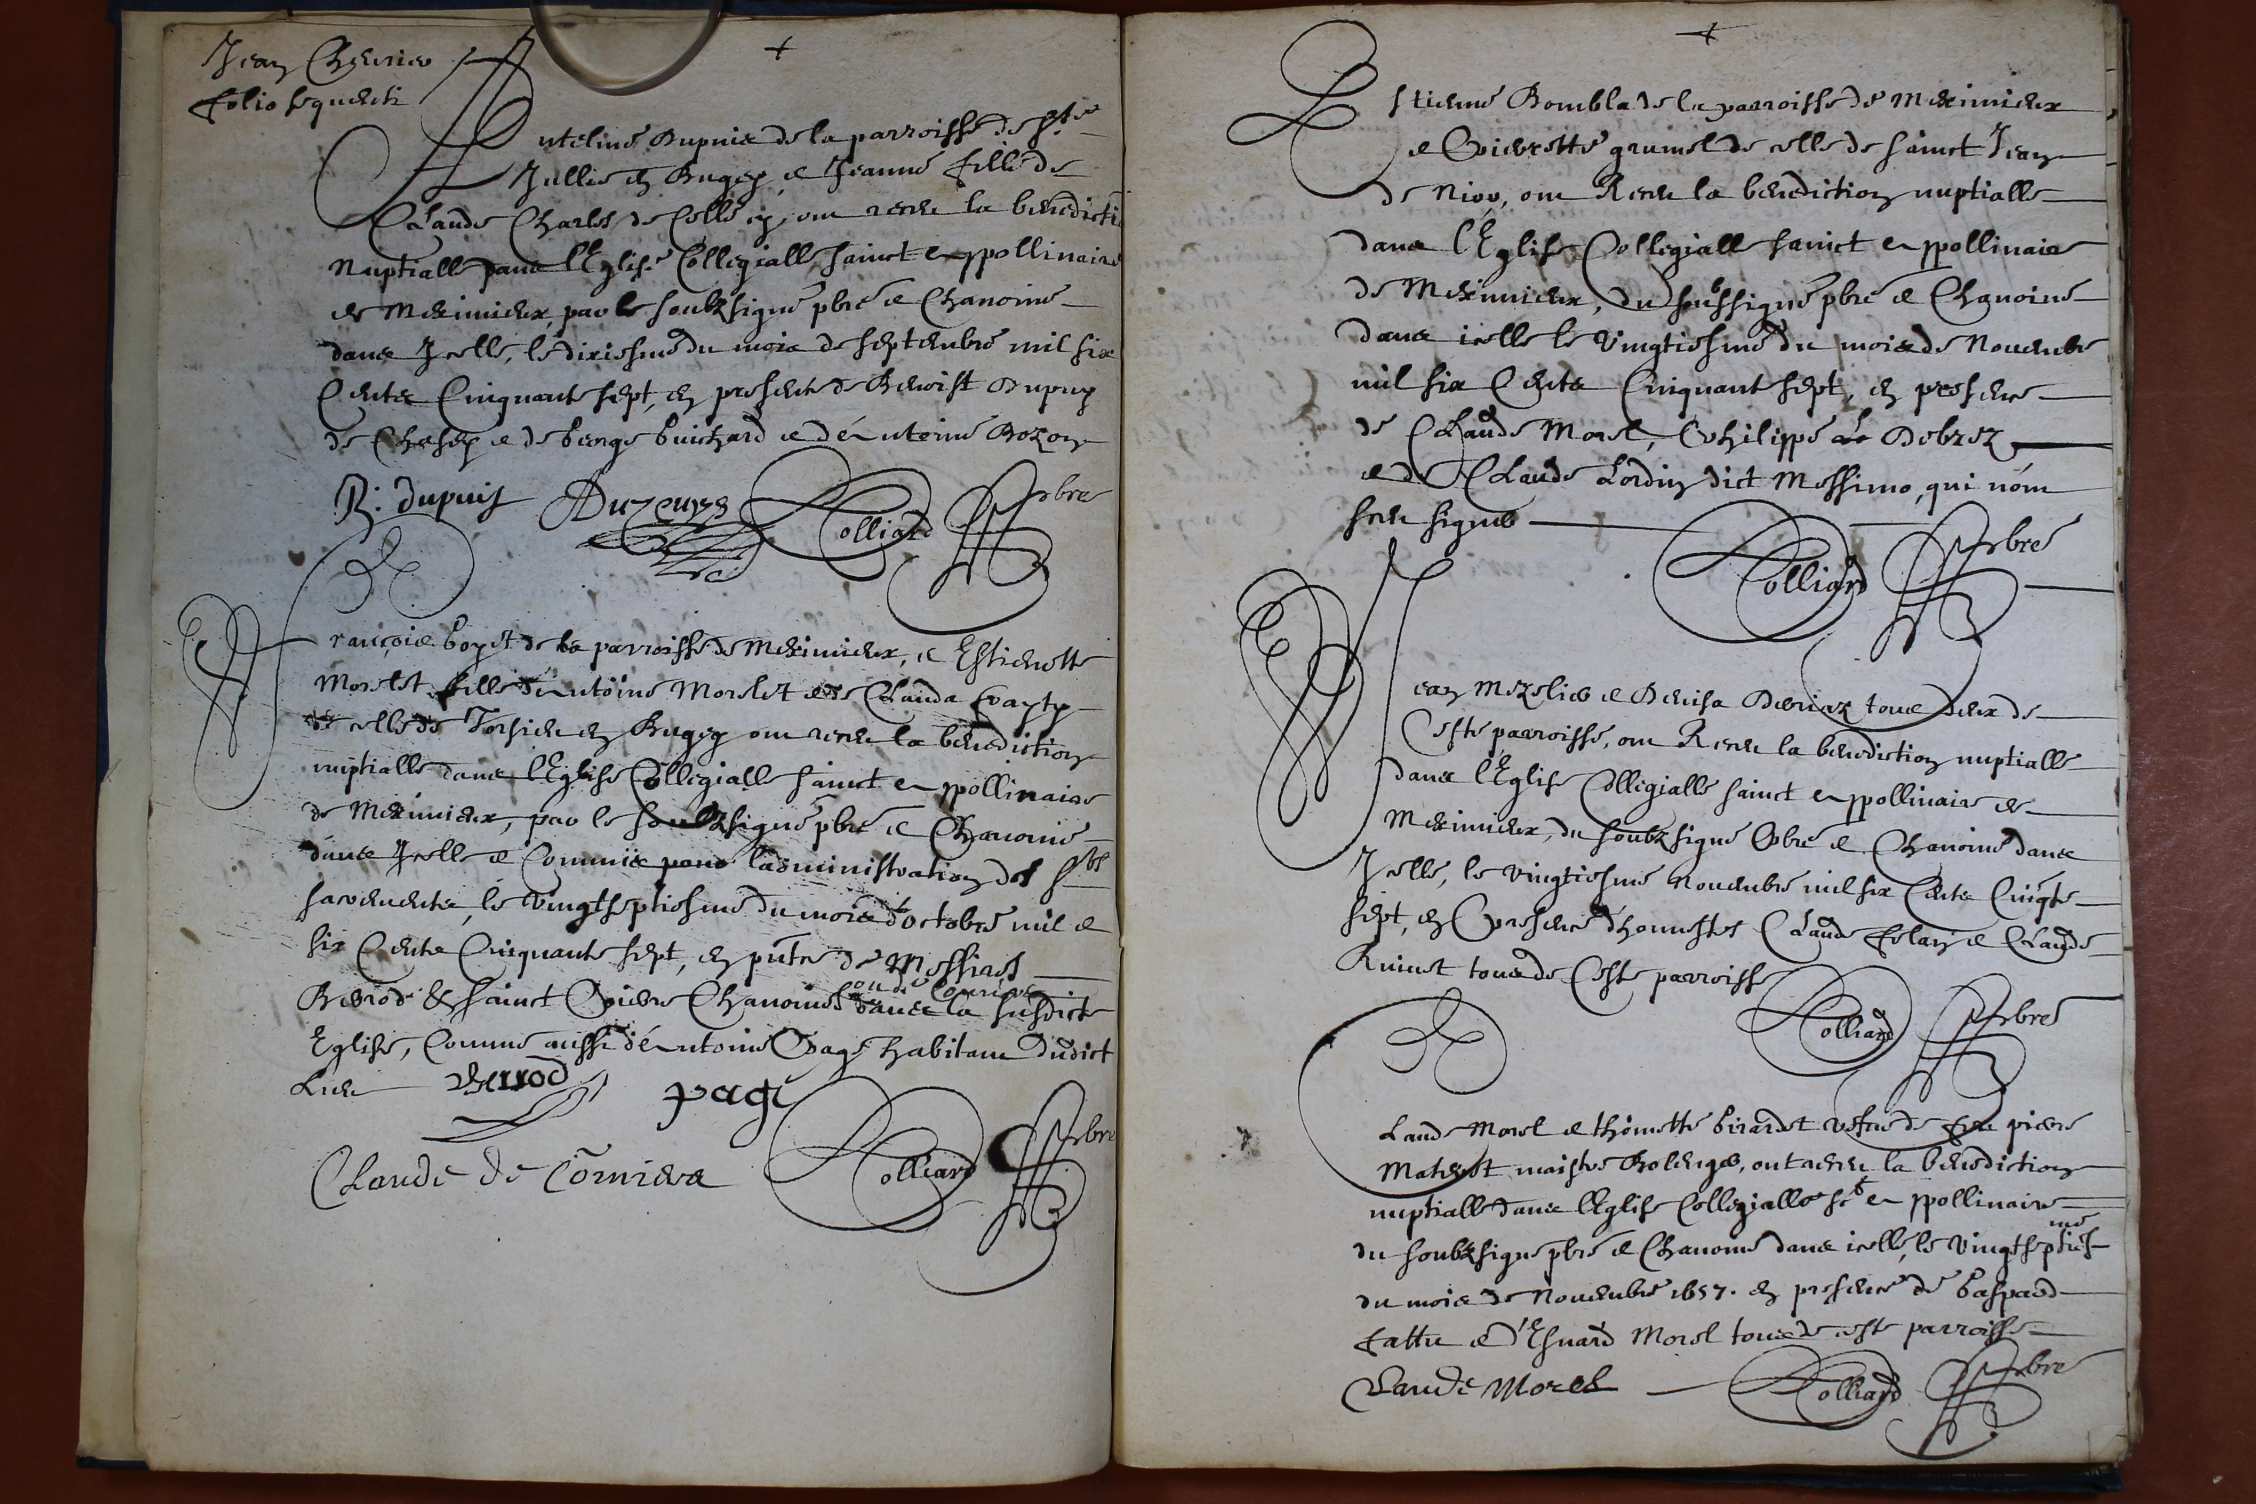 Jean Cheurier
folio sequenti
+
Anteline Dupuis de la parroisse de Ste
Jullie en Bugey, et Jeanne fille de
Claude Charles de Celle cy, ont receu la benedicti
Nuptialle dans l'Eglise Collegialle sainct Appollinaire
de Meximieux, par le soubzsigné pbre et Chanoine
dans Jcelle, le dixiesme du mois de septembre mil six
Cents Cinquante sept, en presence de Benoist Dupuy
de Chasey et de George Guichard et d'Antoine Bozon
B: dupuis Colliard pbre
François Goyet de la parroisse de Meximieux, et Estiennette
Morelet fille d'Antoine Morelet et de Clauda
de celle de Torsieu en Bugey ont receu la benediction
nuptialle dans l'Eglise Collegialle sainct Appollinaire
de Meximieux, par le soubzsigné pbre et Chanoine
dans Jcelle et Commis pour l'administration des Sts
sacrements, le vingtseptiesme du mois d'octobre mil et
six Cents Cinquante sept, en pntce de Messires
Berrod & sainct Pierre Chanoines dans la susdicte
Eglise, Comme aussi d'Antoine Page habitant dudict
Lieu Berrod page
Claude de Colliard pbre
+
Estienne Bombla de la parroisse de Meximieux
et Pierrette grumel de celle de sainct Jean
de Niou, ont Receu la benediction nuptialle
dans l'Eglise Collegialle sainct Appollinaire
de Meximieux, du soubssigné pbre et Chanoine
dans icelle le vingtiesme du mois de Nouembre
mil six Cents Cinquante sept, en presence
de Claude Morel, Philippe Debrez
et de Claude Lordin dict Messimo, qui n'ont
sceu signer
Colliard pbre
Jean Mezelier et Denisa Derriaz tous deux de
Ceste parroisse, ont Receu la benediction nuptialle
dans l'Eglise Collegialle sainct Appollinaire de
Meximieux, du soubzsigné Pbre et Chanoine dans
Jcelle, le vingtiesme Nouembre mil six Cents Cinqte
sept, en Presence d'honnestes Claude et Claude
Ruinet tous de Ceste parroisse
Colliard pbre
Claude Morel et thomette Girardet vefue de feu pierre
Materet maistre Bolenger, ont receu la benediction
nuptialle dans l'Eglise Collegialle sct Appollinaire
du soubzsigné pbre et Chanoine dans icelle, le vingtseptiesme
du mois de Nouembre 1657. en presence de Gaspard
fattu et d'Esnard Morel tous de ceste parroisse
Claude Morel Colliard pbre